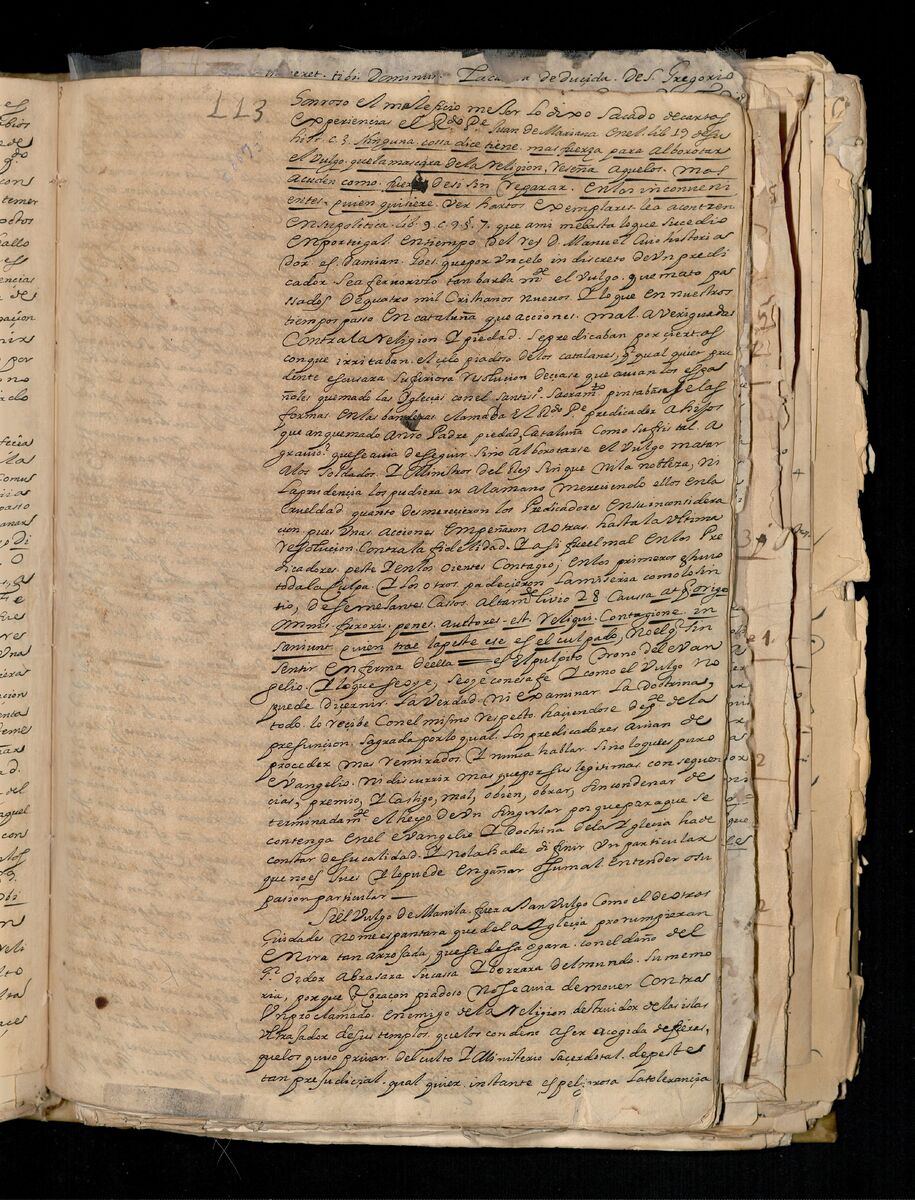 113
Sonroso el maleficio mestor lo dixo sacado de cartos
experiencias el Rdo Pe Juan de Mariana en el lib 19 de su
hist. c. 3. Ninguna cossa dice tiene mas fuerza para alborotar
el vulgo que la mascara de la religion, reseña a que los mas
acuden como fuera de si sin reparar en los inconveni
entes. quien quisiere ver hartos exemplares lea a contzen
en su politica lib. 9. c. 9. §. 7. que a mi me basta lo que sucedio
en portugal en tiempo del rey D. Manuel cuio historia
dor es Damian Goes que por un celo indiscreto de un predi
cador se a fervorizo tan barbamte el vulgo que mato pa
ssados de quatro mil Cristianos nuevos. Y lo que en nuestros
tiempos passo en cataluña que acciones mal averiguadas
contra la religion Y piedad se predicaban por ciertas
con que irritaban el celo piadoso de los catalanes, q qual quier pru
dente escusara su furiosa resolucion deciase que avian los espa
ñoles quemado las Iglesias con el Santiso Sacramto pintabase las
formas en las banderas clamaba el Rdo Pe predicador a hijos
que an quemado a nro Padre piedad, Cataluña como sufris tal a
gravio? que se avia de seguir sino alborotarse el vulgo matar
a los soldados Y Ministros del Rey sin que ni la nobleza, ni
la prudencia los pudiera ir a la mano mereciendo ellos en la
crueldad quanto desmerecieron los Predicadores en su inconsidera
cion pues unas acciones empeñaron a otras hasta la ultima
resolucion contra la fidelidad. Y assi fue el mal en los Pre
dicadores peste Y en los oientes contagio; en los primeros estuvo
toda la culpa Y los otros padecieron la miseria como lo sin
tio, de semejantes casos altamte Livio 28 Caussa at Origo
omnis furoris penes auctores est reliqui contagione in
saniunt quien trae la peste ese es el culpado, no el q sin
sentir enferma de ella — es el pulpito trono del evan
gelio Y lo que se oye, se oye con esa fe Y como el vulgo no
puede dicernir la verdad ni examinar la doctrina,
todo lo recibe con el mismo respecto haciendose de pte de la
presuncion sagrada por lo qual los predicadores avian de
proceder mas remirados Y nunca hablar sino lo que es puro
evangelio ni discurrir mas que por sus legitimas consequen
cias, premio, Y castigo, mal, o bien, obrar, sin condenar de
terminadamte el hecho de un singular por que para que se
contenga en el evangelio Y dochina de la Yglesia ha de
constar de su calidad Y no la ha de difinir un particular
que no es Juez Y le puede engañar o su mal entender o su
pasion particular —
Si el vulgo de Manila fuera tan vulgo como el de otras
Ciudades no me espantara que de la Yglesia prorumpieran
en ira tan arrojada, que se desaogara con el daño del
Sr Oidor abrasara su cassa Y borrara del mundo su memo
ria, porque que coraçon piadoso no se avia de mover contra
un proclamado enemigo de la religion destruidor de las islas
ultrajador de sus templos que los condeno a ser acogida de fieras,
que los quiso privar del culto Y Ministerio sacerdotal de peste
tan presudicial qual quier instante es peligrosa la tolerancia